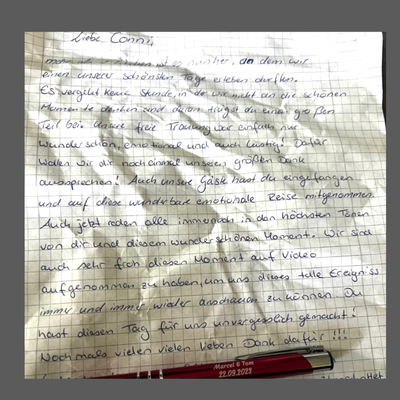 Liebe Conni,
ist es nunher, an dem wir
einen unserer schönsten Tage erleben durften.
Es vergeht keine Stunde, in der wir nicht an die schönen
Momente denken und daran trägst du einen großen
Teil bei. Unsere freie Trauung war einfach nur
wunderschön, emotional und auch lustig! Dafür
wollen wir dir noch einmal unseren größten Dank
aussprechen! Auch unsere Gäste hast du eingefangen
und auf diese wunderbare emotionale Reise mitgenommen.
Auch jetzt reden alle immernoch in den höchsten Tönen
von dir und diesem wunderschönen Moment. Wir sind
auch sehr froh diesen Moment auf Video
aufgenommen zu haben, um uns dieses tolle Ereigniss
immer und immer wieder anschauen zu können. Du
hast diesen Tag für uns unvergesslich gemacht!
Nochmals vielen vielen lieben Dank dafür !!!
Marcel & Tom
22.09.2023